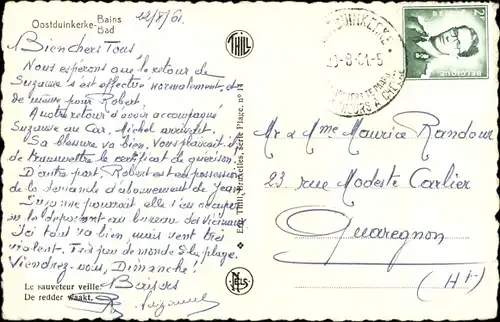 Oostduinkerke-Bains
Bad
12/8/61.
Bien chers Tous
Nous espérons que le retour de
Suzanne s'est effectué normalement, et
de même pour Robert.
A notre retour d'avoir accompagné
Suzanne au Car, Michel arrivait.
Sa blessure va bien. Vous plairait-il
de transmettre le certificat de guérison.
D'autre part, Robert est en possession
de la demande d'abonnement de Jean
Suzanne pourrait elle s'en occuper
en la déposant au bureau des
Ici tout va bien, mais vent très
violent. Très peu de monde s/la plage.
Viendrez-vous, Dimanche!
Baisers
Le sauveteur veille.
De redder waakt.
THILL
Edit. Thill, Bruxelles, Série Plage, nº 14
NELS
DUINKERKE
-8-61-5
2F
BELGIQUE
Mr & Mme Maurice Randour
23 rue Modeste Carlier
Quaregnon
(Ht)